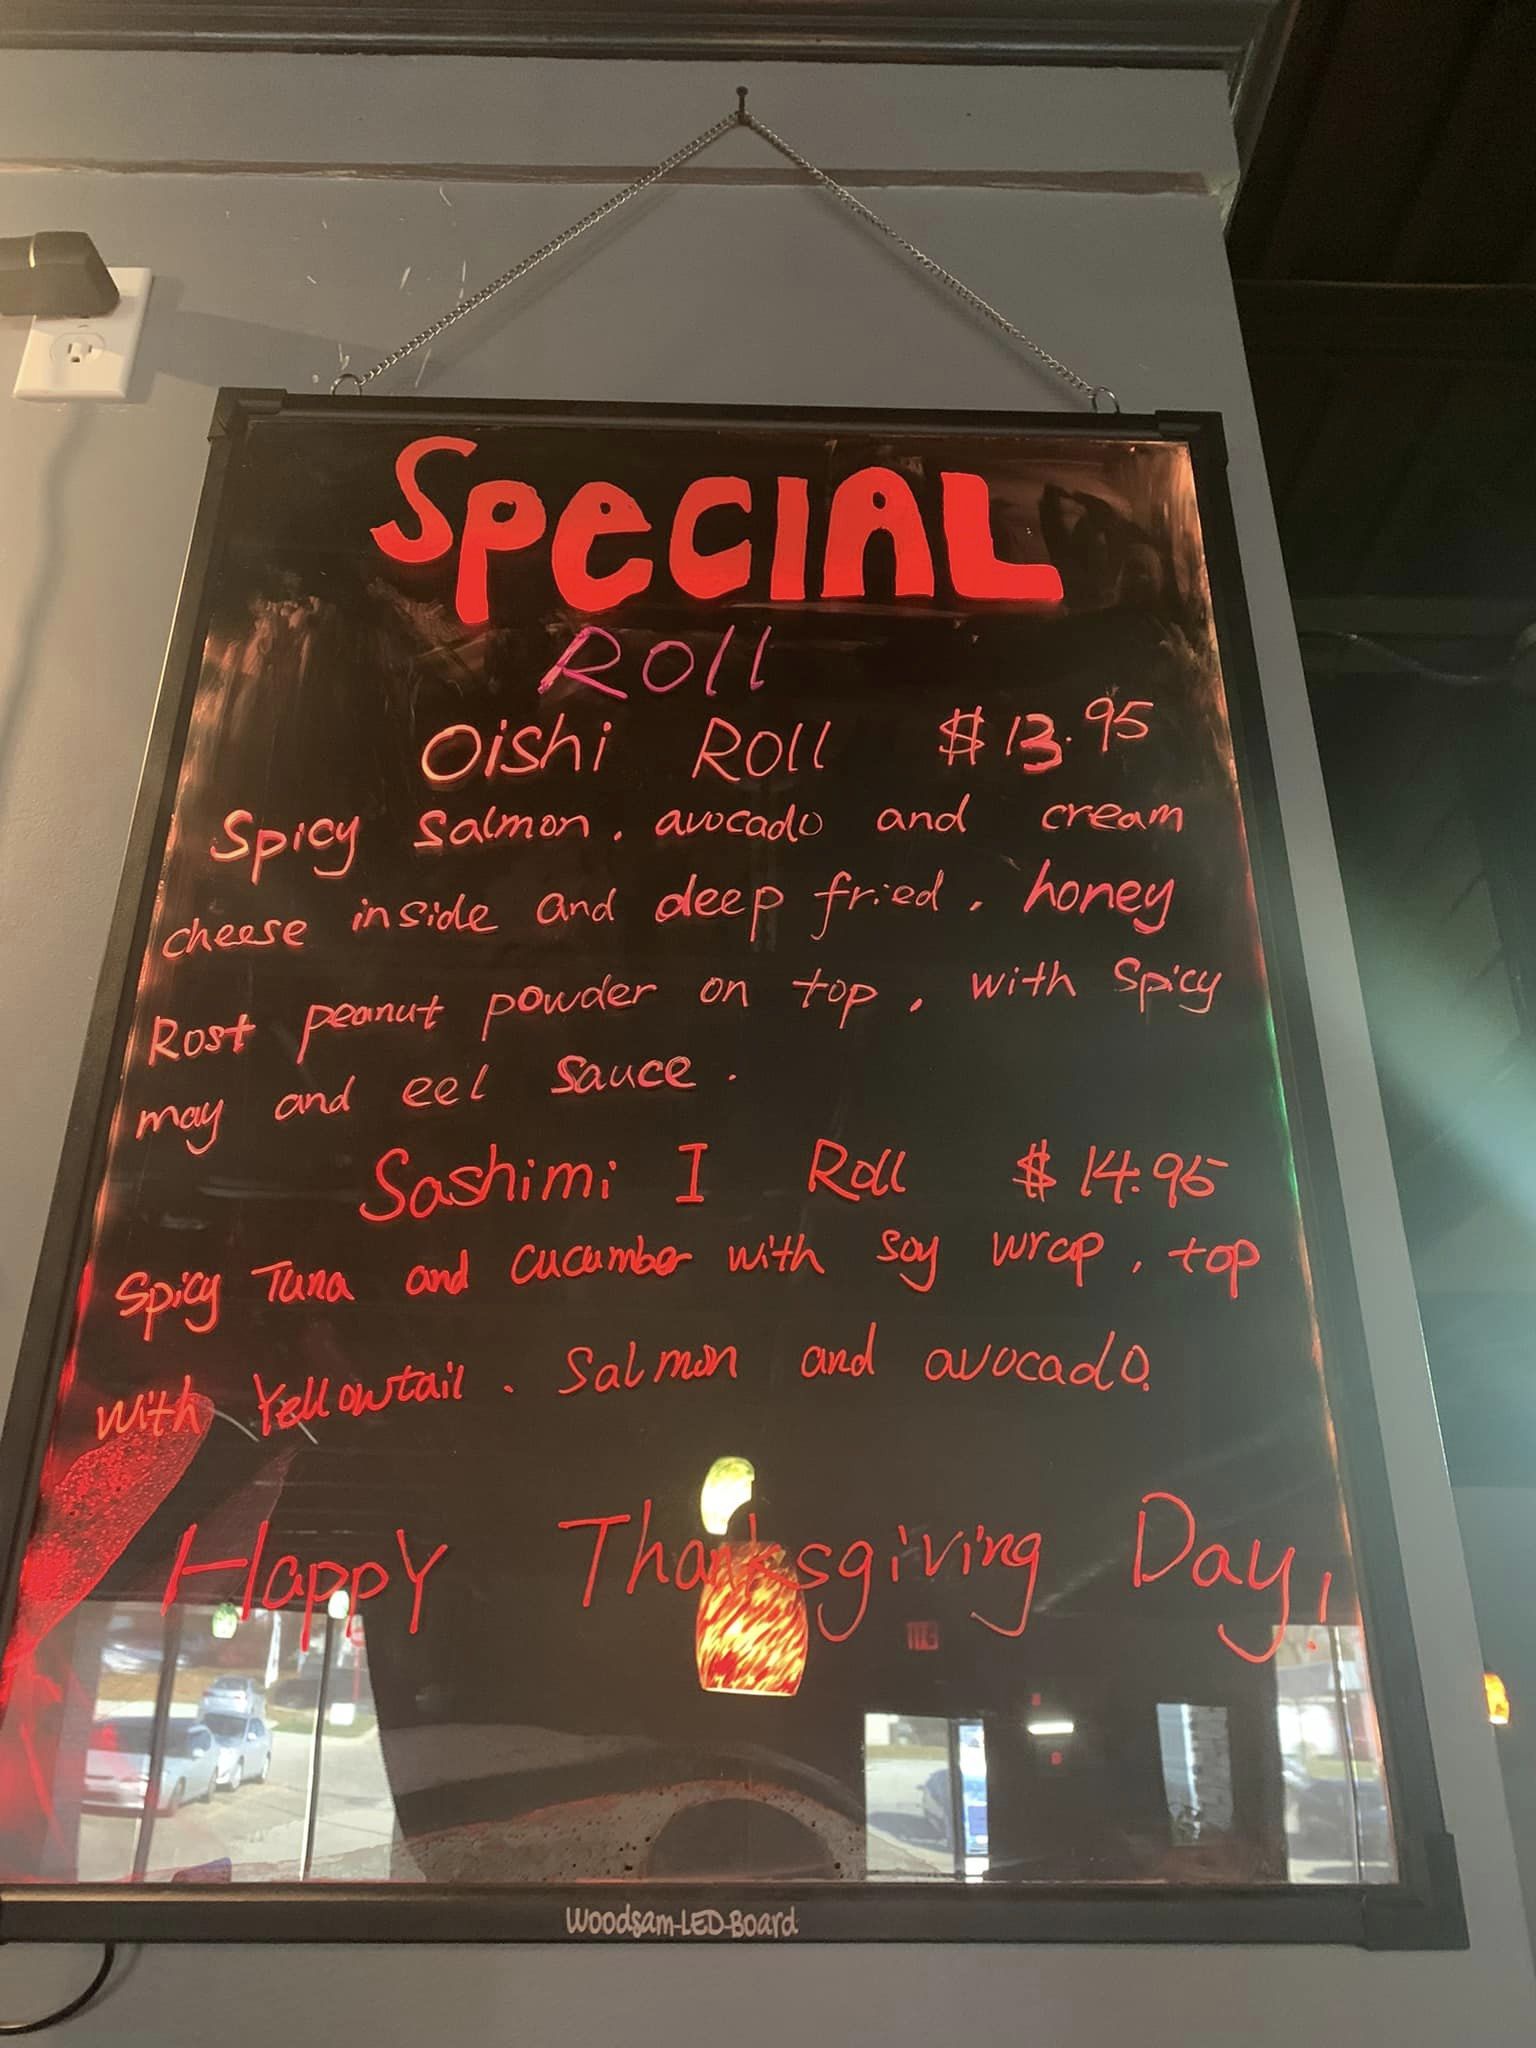 SpecIAL
Roll
Oishi Roll $13.95
Spicy Salmon. avocado and cream
cheese inside and deep fried. honey
Rost peanut powder on top, with Spicy
may and eel sauce.
Sashimi I Roll $14.95
Spicy Tuna and cucumber with soy wrap, top
with Yellowtail. Salmon and avocado.
Happy Thanksgiving Day!
Woodsam-LED-Board